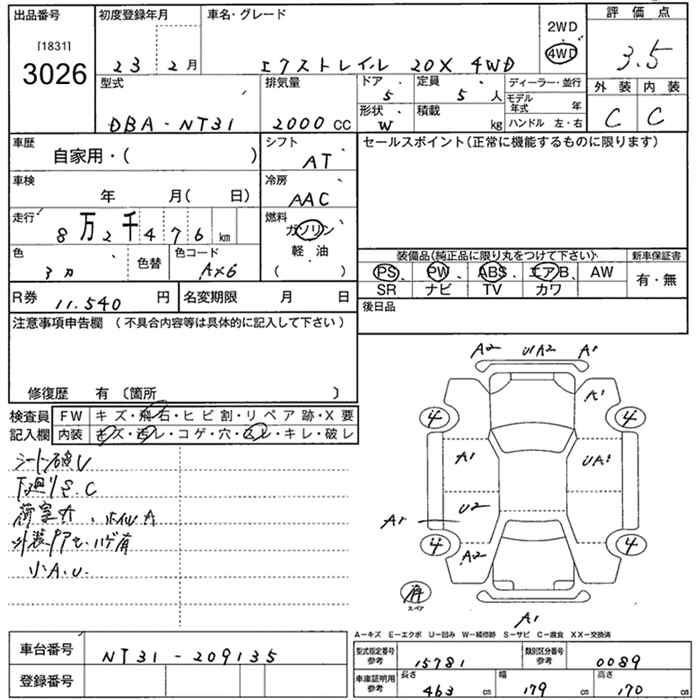 出品番号 初度登録年月 車名・グレード 2WD 評価点
[1831] 4WD
3026 23 2月 エクストレイル 20X 4WD 3.5
型式 排気量 ドア 定員 ディーラー・並行 外装 内装
5 5人 モデル年式 年
形状 積載 C C
DBA-NT31 2000cc W kg ハンドル 左・右
車歴 シフト セールスポイント(正常に機能するものに限ります)
自家用・( ) AT
車検 冷房
年 月( 日) AAC
走行 燃料
8万2千476km ガソリン
軽・油
( )
色 色替 色コード 装備品(純正品に限り丸をつけて下さい) 新車保証書
AX6 PS PW ABS エアB AW 有・無
SR ナビ TV カワ
R券 11.540円 名変期限 月 日
後日品
注意事項申告欄(不具合内容等は具体的に記入して下さい)
修復歴 有〔箇所 〕
検査員 FW キズ・飛石・ヒビ割・リペア跡・X要
記入欄 内装 キズ・汚レ・コゲ・穴・スレ・キレ・破レ
シート破レ
下廻りS.C
荷室大、ホイルA
小A.U.
A2 UA2 A1
A1
4 4
A1 UA1
U2
A1
4 4
A2
スペア
A1
A-キズ E-エクボ U-凹み W-補修跡 S-サビ C-腐食 XX-交換済
車台番号 NT31-209135
登録番号
型式指定番号 参考 15781 類別区分番号 参考 0089
車庫証明用 参考 長さ 463cm 幅 179cm 高さ 170cm